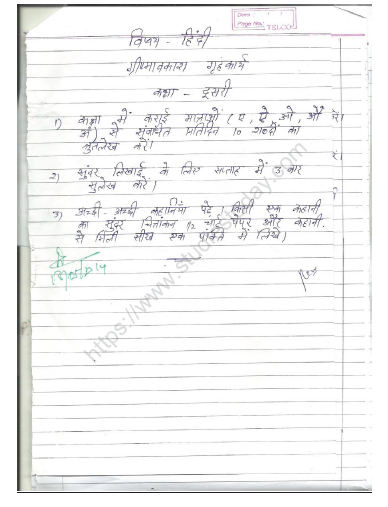 Date:
Page No.:
TELCO
विषय - हिंदी
ग्रीष्मावकाश गृहकार्य
कक्षा - दूसरी
1) कक्षा में कराई मात्राओं ( ए, ऐ, ओ, औ
अं ) से संबंधित प्रतिदिन 10 शब्दों का
श्रुतलेख करें।
2) सुंदर लिखाई के लिए सप्ताह में 3 बार
सुलेख करें।
3) अच्छी - अच्छी कहानियाँ पढ़ें। किसी एक कहानी
का सुंदर चित्रांकन 1/2 चार्ट पेपर और कहानी
से मिली सीख एक पंक्ति में लिखें।
https://www.studiestoday.com